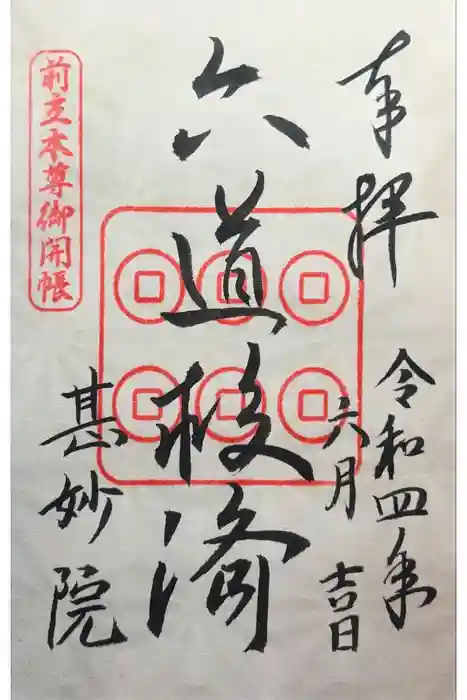 奉拝
令和四年
六月
吉日
六道救済
甚妙院
前立本尊御開帳